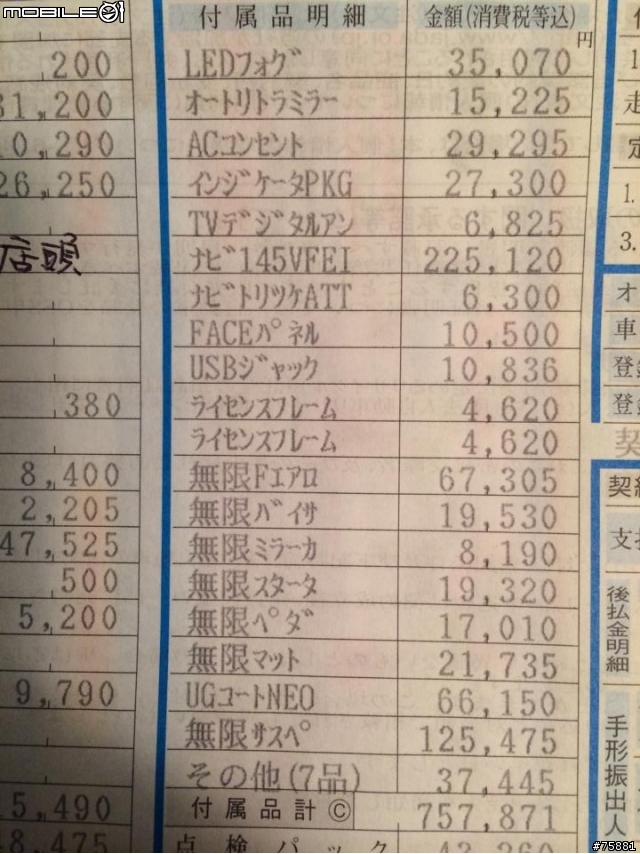 MOBILE01
付属品明細 金額(消費税等込)
円
LEDフォグ 35,070
オートリトラミラー 15,225
ACコンセント 29,295
インジケータPKG 27,300
TVデジタルアン 6,825
ナビ145VFEI 225,120
ナビトリツケATT 6,300
FACEパネル 10,500
USBジャック 10,836
ライセンスフレーム 4,620
ライセンスフレーム 4,620
無限Fエアロ 67,305
無限バイサ 19,530
無限ミラーカ 8,190
無限スタータ 19,320
無限ペダ 17,010
無限マット 21,735
UGコートNEO 66,150
無限サスペ 125,475
その他(7品) 37,445
付属品計Ⓒ 757,871
点検パック 43,260
200
31,200
10,290
26,250
店頭
380
8,400
2,205
47,525
500
5,200
9,790
15,490
48,475
1.
3.
オ
車
登録
登録
契
契約
支払
後払金明細
手形振出人
#75881